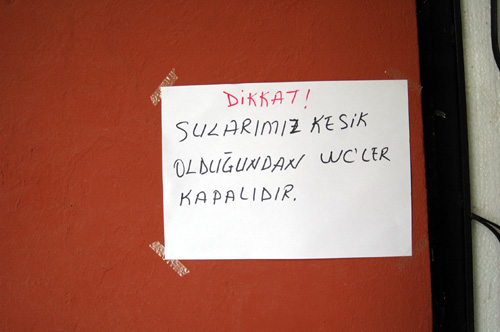 DİKKAT!
SULARIMIZ KESİK
OLDUĞUNDAN WC'LER
KAPALIDIR.